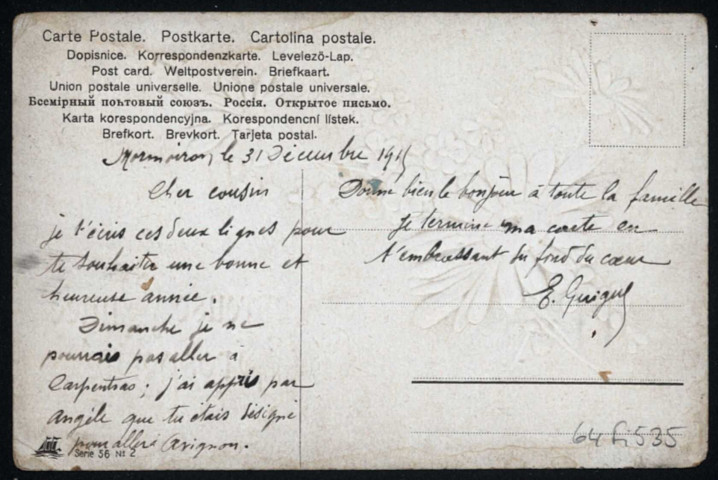 Carte Postale. Postkarte. Cartolina postale.
Dopisnice. Korrespondenzkarte. Levelező-Lap.
Post card. Weltpostverein. Briefkaart.
Union postale universelle. Unione postale universale.
Всемірный поьтовый союзъ. Россія. Открытое письмо.
Karta korespondencyjna. Korespondencní lístek.
Brefkort. Brevkort. Tarjeta postal.
Mormoiron, le 31 Décembre 1915
Cher cousin
je t'écris ces deux lignes pour
te souhaiter une bonne et
heureuse année.
Dimanche je ne
pourrais pas aller à
Carpentras; j'ai appris par
Angèle que tu étais désigné
pour aller à Avignon.
Donne bien le bonjour à toute la famille
Je termine ma carte en
t'embrassant du fond du cœur
E.
Serie 56 № 2
64 Fi 535